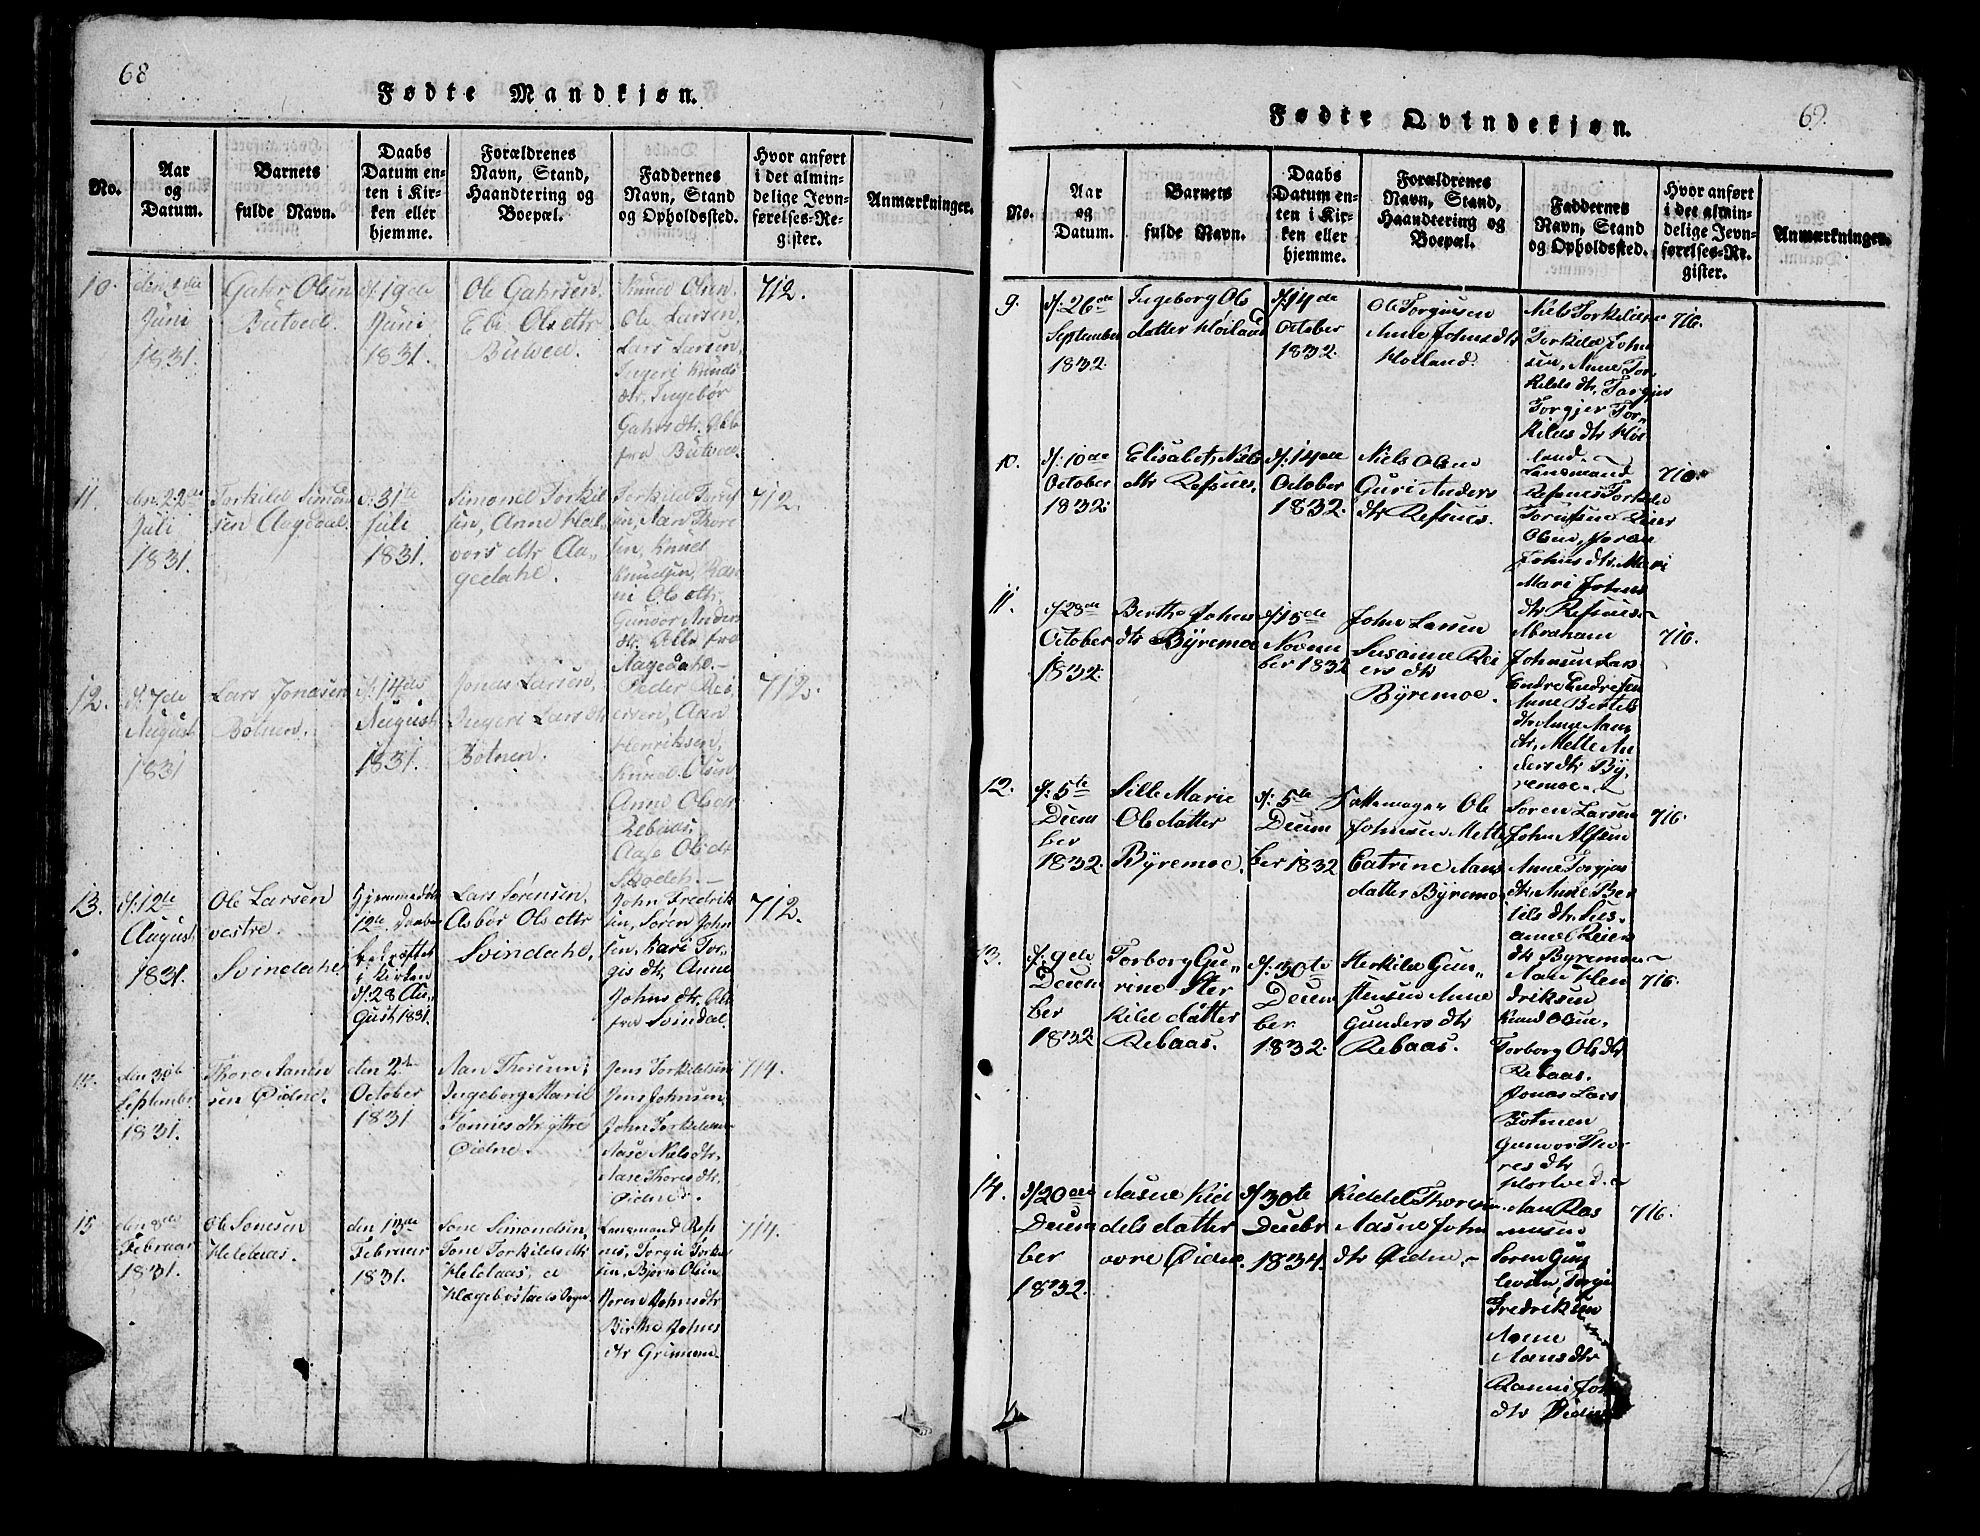 68
Fødte Mandkjøn.
No.
Aar
og
Datum.
Barnets
fulde Navn.
Daabs
Datum en-
ten i Kir-
ken eller
hjemme.
Forældrenes
Navn, Stand,
Haandtering og
Boepæl.
Faddernes
Navn, Stand
og Opholdssted.
Hvor anført
i det almin-
delige Jevn-
førelses-Re-
gister.
Anmærkninger.
10.
Juni
1831.
Gahr Olsen
Butved.
d: 19de
Juni
1831.
Ole Gahrsen.
Eli Ols dtr
Butved.
Knud Olsen.
Ole Larsen,
Lars Larsen,
Ingeri Knuds
dtr, Ingebor
Gahrs dtr. Alle
fra Butved.
712.
11.
den 22de
Juli
1831.
Torkild Simon
sen Aagedal.
d: 31te
Juli
1831.
Simond Torkil
sen, Anne Hal,,
vors dtr Aa,,
gedahl.
sen, Aan Thore
sen, Knud
Knudsen,
ni Ols dtr.
Gunvor Anders
dtr. Alle fra
Aagedahl.
712.
12.
d: 7de
August
1831
Lars Jonasen
Botnen.
d: 14de
August
1831.
Jonas Larsen,
Ingeri Lars dtr
Botnen.
Peder Rei
ersen, Aan
Henriksen,
Knud Olsen
Anne Ols dtr
Rebaas.
Aase Ols dtr
712.
13.
d: 12te
August
1831.
Ole Larsen
vestre.
Svindahl.
Hjemmedøbt
12te Daaben
bekræftet
i Kirken
d: 28 Au,,
gust 1831.
Lars Sørensen,
Asbør Ols dtr
Svindahl.
John Fredrik
sen, Søren John
sen, Kari Tor,,
gis dtr, Anne
Johns dtr. Alle
fra Svindal.
712.
14.
September
1831.
Thore Aanen
sen Øidne.
den 2de
October
1831
Aan Thoresen,
Ingeborg Marie
Tønnes dtr yttre
Øidne.
Jens Torkildsen
Jens Johnsen
John Torkildsen
Aase Niels dtr,
Aase Thores dtr,
Øidne.
714.
15
den 8de
Februar
1831.
Ole Tønesen
Helelaas.
den 13de
Februar
1831.
Tone Simondsen,
Tone Torkilds dtr
Helelaas, a
Hægebostads Sogn.
Lensmand Refs
nes, Torgii Torkild
sen, Bjørn Olsen
Joren Johns dtr
Birthe Johns
dtr Grimem.
714.
69.
Fødte Qvindekjøn.
No.
Aar
og
Datum.
Barnets
fulde Navn.
Daabs
Datum en-
ten i Kir-
ken eller
hjemme.
Forældrenes
Navn, Stand,
Haandtering og
Boepæl.
Faddernes
Navn, Stand
og Opholdssted.
Hvor anført
i det almin-
delige Jevn-
førelses-Re-
gister.
Anmærkninger.
9.
d: 26de
September
1832
Ingeborg Ols
datter Høiland
d: 14de
October
1832.
Ole Torgiusen
Anne Johns dtr
Holland.
Niels Torkildsen
Torkild John
sen, Anne Tor,,
kilds dtr, Torgier
Torgjer Tor,,
kilds dtr Høi
land.
716.
10.
d: 10de
October
1832.
Elisabet Niels
dtr Refsnes.
d: 14de
October
1832.
Niels Olsen
Guri Anders
dtr Refsnes.
Lensmand
Refsnes Torkild
Olsen, Joren
Johns dtr, Mari
Mari Johns
dtr Refsnes
716.
11.
d: 28de
October
1832.
Berthe Johns
dtr Byremoe
d: 15de
Novem
ber 1832
John Larsen
Susanne Rei
ers dtr
Byremoe.
Abraham
Johnsen Lars
Endre Endresen
Anne Bertels
dtr Anne Aans
dtr, Mette An
ders dtr By,,
remoe.
716.
12.
d: 5te
Decem
ber
1832.
Sille Marie
Ols datter
Byremoe.
d: 5te
Decem
ber 1832
Ole
Johnsen Mette
Catrine Aans
datter Byremoe
Søren Larsen
John Alfsen
Anne Torgjus
dtr Anne Ber
tels dtr Sus,,
anne Reiers
dtr Byremoe
716.
13.
d: 9de
Decem
ber
1832
Torborg Gu,,
rine Ster
kild datter
Rebaas.
d: 30te
Decem
ber
1832.
Sterkild Gun,,
stensen Anne
Gunders dtr
Rebaas.
Hen
driksen
Knud Olsen,
Torborg Ols dtr
Rebaas.
Jonas Lars
Botnen
Gunvor Tho
res dtr
Hortved.
716.
14.
d: 20de
Decem
ber
1832.
Aasne Kid
dels datter
øvre Øidne.
d: 30te
Decebr
1834.
Kiddel Thoresen
Aasne John
dtr Øidne.
Aan Ras
musen
Søren Gun
Fredriksen
Anne
Aans dtr
dtr Øidne
716.